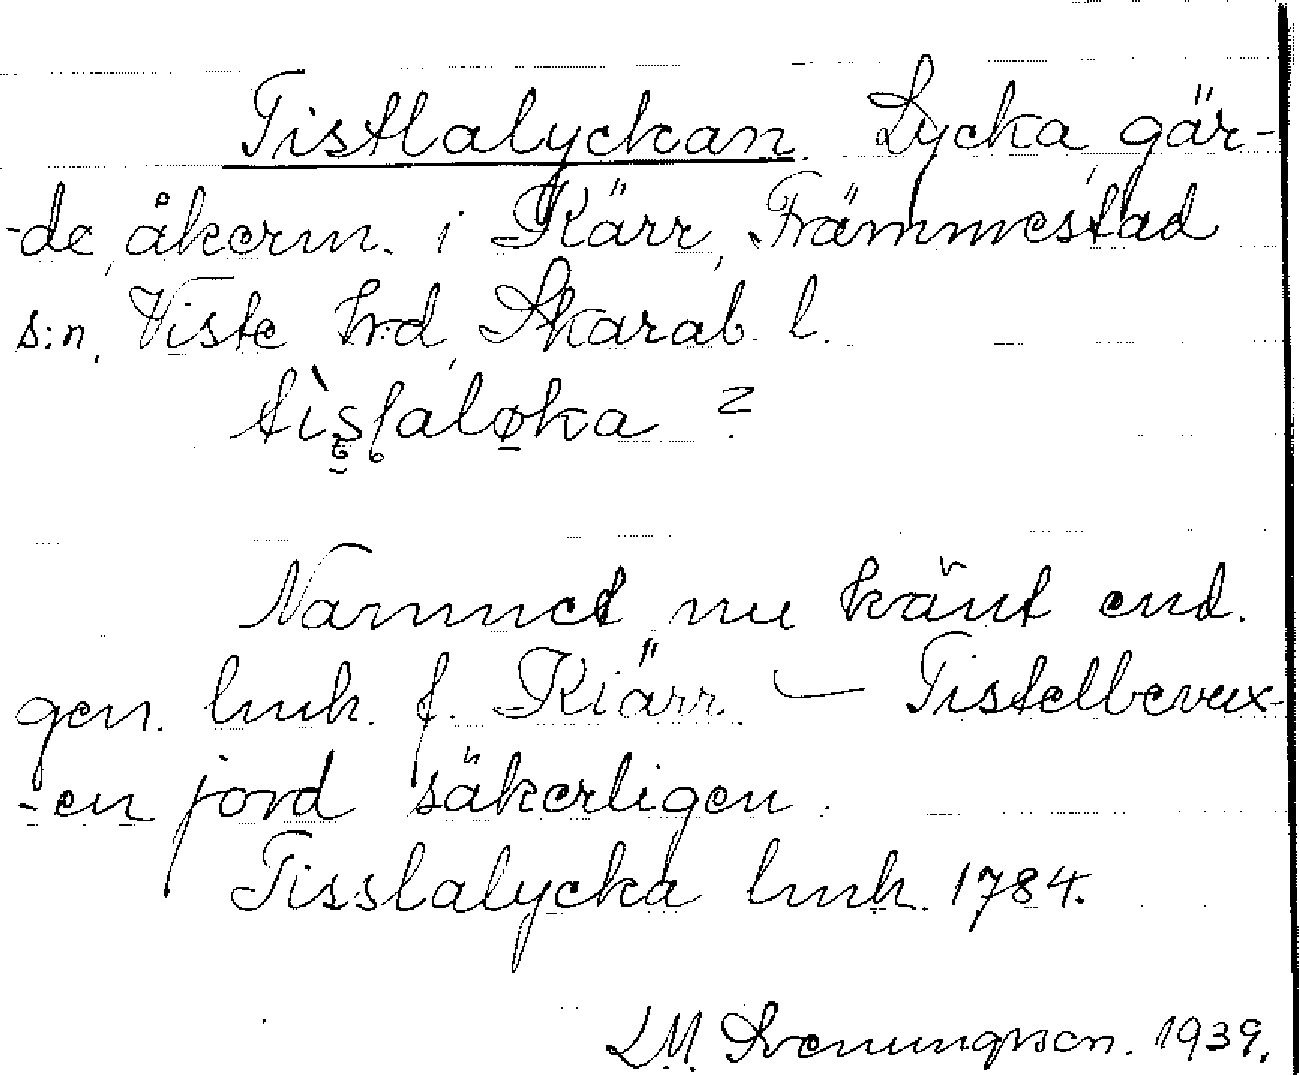 Tistlalyckan. Lycka, gär-
-de, åkerm. i Kärr, Främmestad
s:n, Viste hrd, Skarab. l.
?
Namnet nu känt end.
gen. lmk. f. Kiärr. — Tistelbevux-
-en jord säkerligen.
Tisslalycka lmk. 1784.
LM. Svenungsson. 1939.